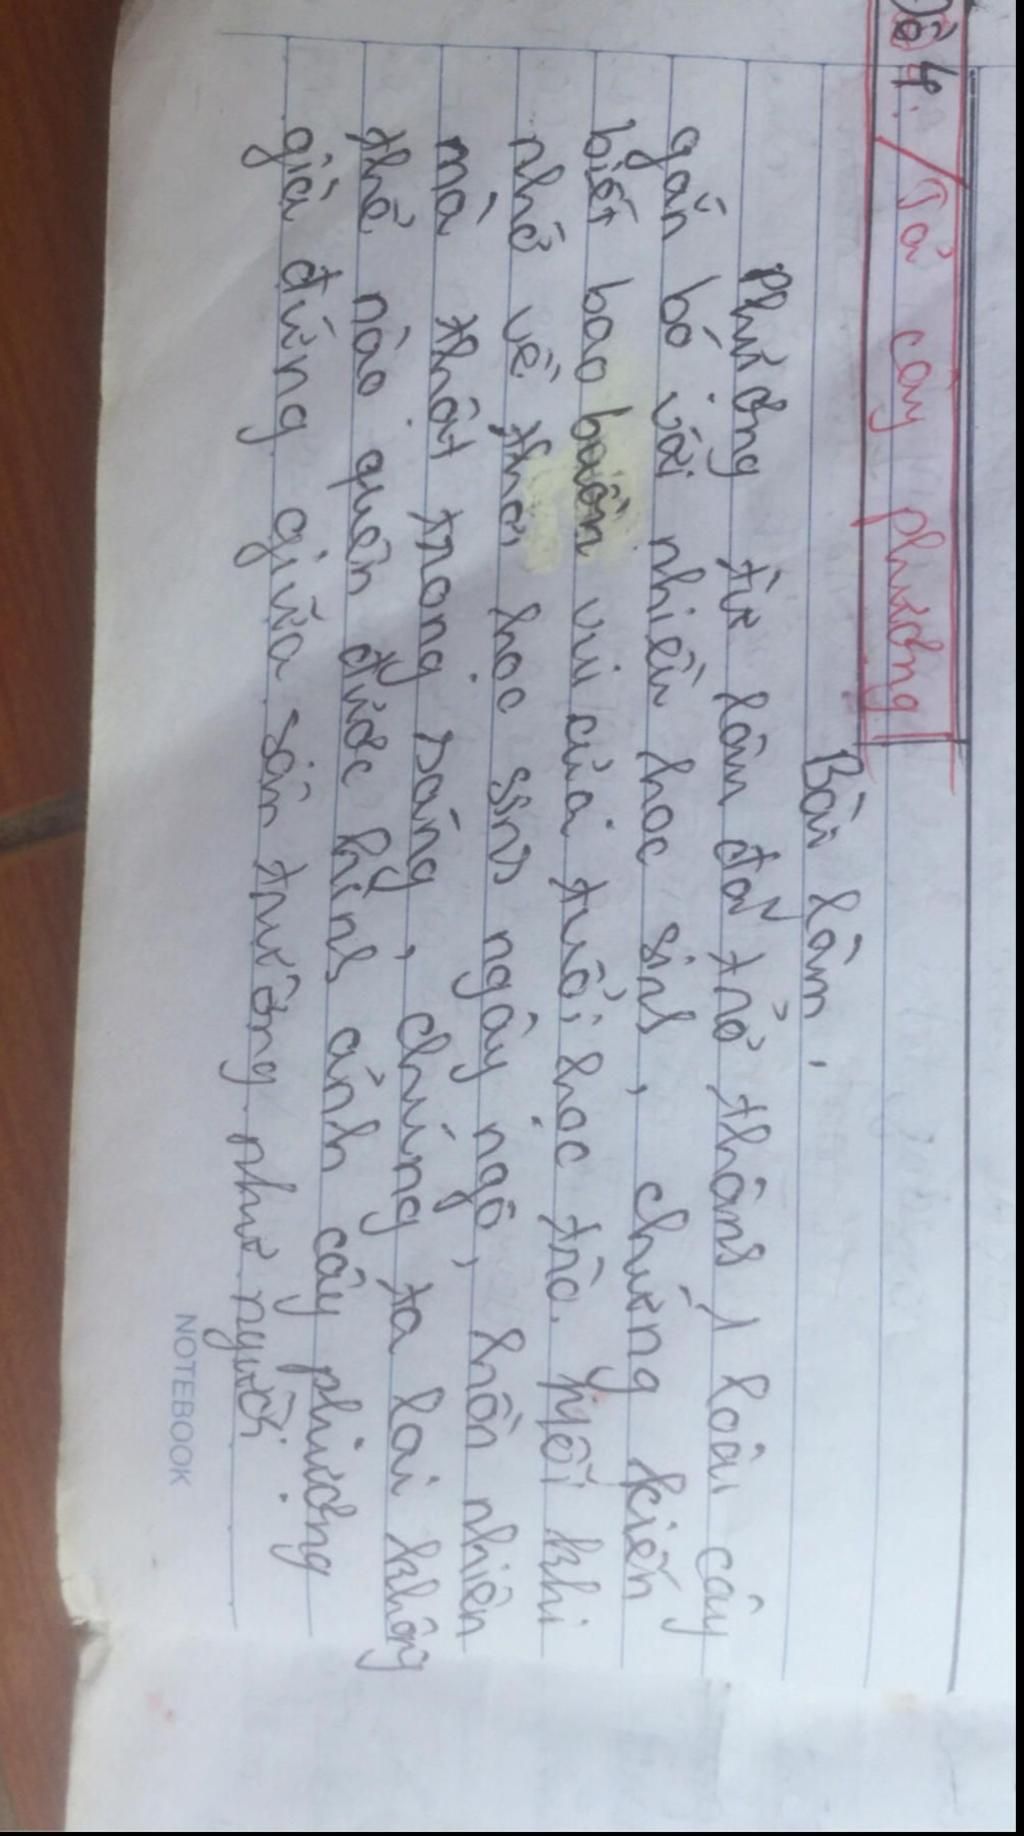 Đề 4: Tả cây phượng
Bài làm.
Phượng từ lâu đã trở thành 1 loài cây
gắn bó với nhiều học sinh, chứng kiến
biết bao buồn vui của tuổi học trò. Mỗi khi
nhớ về thời học sinh ngây ngô, hồn nhiên
mà thật trong sáng, chúng ta lại không
thể nào quên được hình ảnh cây phượng
già đứng giữa sân trường như người
NOTEBOOK